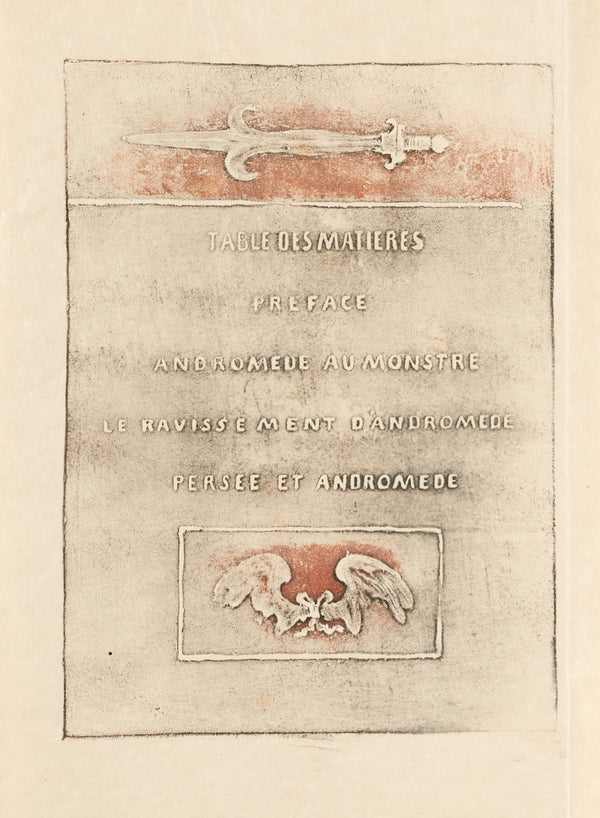 TABLE DES MATIERES
PREFACE
ANDROMEDE AU MONSTRE
LE RAVISSEMENT D'ANDROMEDE
PERSÉE ET ANDROMEDE